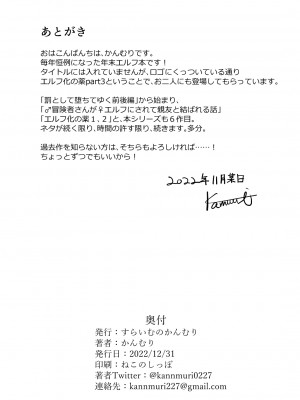 あとがき
おはこんばんちは、かんむりです。
毎年恒例になった年末エルフ本です！
タイトルには入れていませんが、ロゴにくっついている通り
エルフ化の薬part3ということで、お二人にも登場してもらっています。
「罰として堕ちてゆく前後編」から始まり、
「♂冒険者さんが♀エルフにされて親友と結ばれる話」
「エルフ化の薬１.２」と、本シリーズも６作目。
ネタが続く限り、時間の許す限り、続きます。多分。
過去作を知らない方は、そちらもよろしければ……！
ちょっとずつでもいいから！
2022年11月某日
Kanmuri
奥付
発行：すらいむのかんむり
著者：かんむり
発行日：2022/12/31
印刷：ねこのしっぽ
著者Twitter：@kannmuri0227
連絡先：kannmuri227@gmail.com